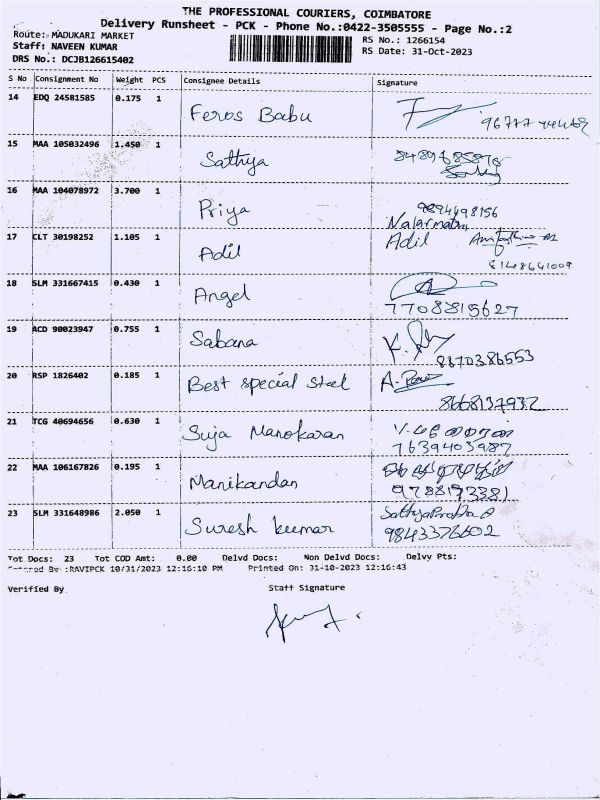 THE PROFESSIONAL COURIERS, COIMBATORE
Delivery Runsheet - PCK - Phone No.:0422-3505555 - Page No.:2
Route: MADUKARI MARKET
RS No.: 1266154
Staff: NAVEEN KUMAR
RS Date: 31-Oct-2023
DRS No.: DCJB126615402
S No Consignment No Weight PCS Consignee Details Signature
14 EDQ 24581585 0.175 1 Feros Babu
15 MAA 105032496 1.450 1 Sathya
16 MAA 104078972 3.700 1 Priya 9894498156
Nalarmathi
17 CLT 30198252 1.105 1 Adil Adil
8148641009
18 SLM 331667415 0.430 1 Angel
7708815627
19 ACD 90023947 0.755 1 Sabana
8870386553
20 RSP 1826402 0.185 1 Best special steel
8668137932
21 TCG 40694656 0.630 1 Suja Manokaran
7639403987
22 MAA 106167826 0.195 1 Manikandan
9788193381
23 SLM 331648986 2.050 1 Suresh kumar
9843376602
Tot Docs: 23 Tot COD Amt: 0.00 Delvd Docs: Non Delvd Docs: Delvy Pts:
By :RAVIPCK 10/31/2023 12:16:10 PM Printed On: 31-10-2023 12:16:43
Verified By Staff Signature